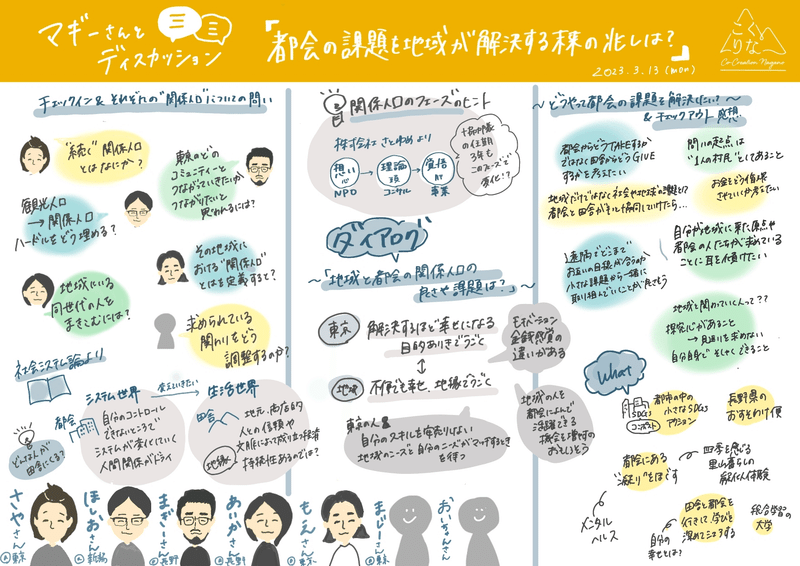 マギーさんと
ディスカッション
「都会の課題を地域が解決する種の兆しは?」
2023.3.13 (mon)
こくりなが
Co-Creation Nagano
チェックイン& それぞれの"関係人口"についての問い
"続く"関係人口
とはなにか?
東京のどの
コミュニティーと
つながっていきたいか
つながりたいと
思われるには?
観光人口
→関係人口
ハードルをどう埋める?
その地域に
おける"関係人口"
とはを定義すると?
地域にいる
同世代の人を
まきこむには?
求められている
関わりをどう
調整するのか?
社会システム論より
システム世界
→
生活世界
都会
自分のコントロール
できないところで
システムが変化していく
人間関係がドライ
田舎
地縁
地元・商店的
人との信頼や
文脈によって成り立つ経済
持続性があるのでは?
どんな人が
田舎にくる?
関係人口のフェーズのヒント
株式会社 さとゆめより
想い
心
NPO
理論
頭
コンサル
覚悟
財
事業
協力隊
の任期
3年も
このフェーズで
変化!?
ダイアログ
〜「地域と都会の関係人口の
良さや課題は?」〜
東京
解決するほど幸せになる
目的ありきでうごく
↕
地域
不便でも幸せ、地縁でうごく
モチベーション
金銭感覚の
違いがある
東京の人
自分のスキルを安売りしない
地域のニーズと自分のニーズがマッチするとき
を待つ
地域の人を
都会によんで
活躍できる
機会を増やすの
おもしろそう
〜どうやって都会の課題を解決したい?〜
& チェックアウト 感想
都会からどうTAKEするか
ではなく田舎からどうGIVE
するかを考えたい
問いの起点は
"1人の村民"としてあること
お金をどう循環
させていくか考えたい
地域だけではなく社会や地球の課題は?
都会と田舎が手と協同していけたら…
遠隔でどこまで
お互いの目線が合うのか
小さな課題から一緒に
取り組んでいくことが良さそう
自分が地域に来た原点や
都会の人たちが求めている
ことに耳を傾けたい
地域と関わっていく人って??
探究心があること
→見返りを求めない
自分自身でそしゃくできること
What
SDGs
コンポスト
都市の中の
小さなSDGs
アクション
長野県の
おすそわけ便
都会にある
"凝り"をほぐす
四季を感じる
里山暮らしの
メンタル
ヘルス
自分の
幸せとは?
田舎と都会を
行きして、学びを
深めてシェアする
総合学習の
大学
さやさん
東京
ほしおさん
新潟
まぎーさん
長野
あいかさん
長野
もえさん
東京
まじーさん
東京
おいちゃんさん